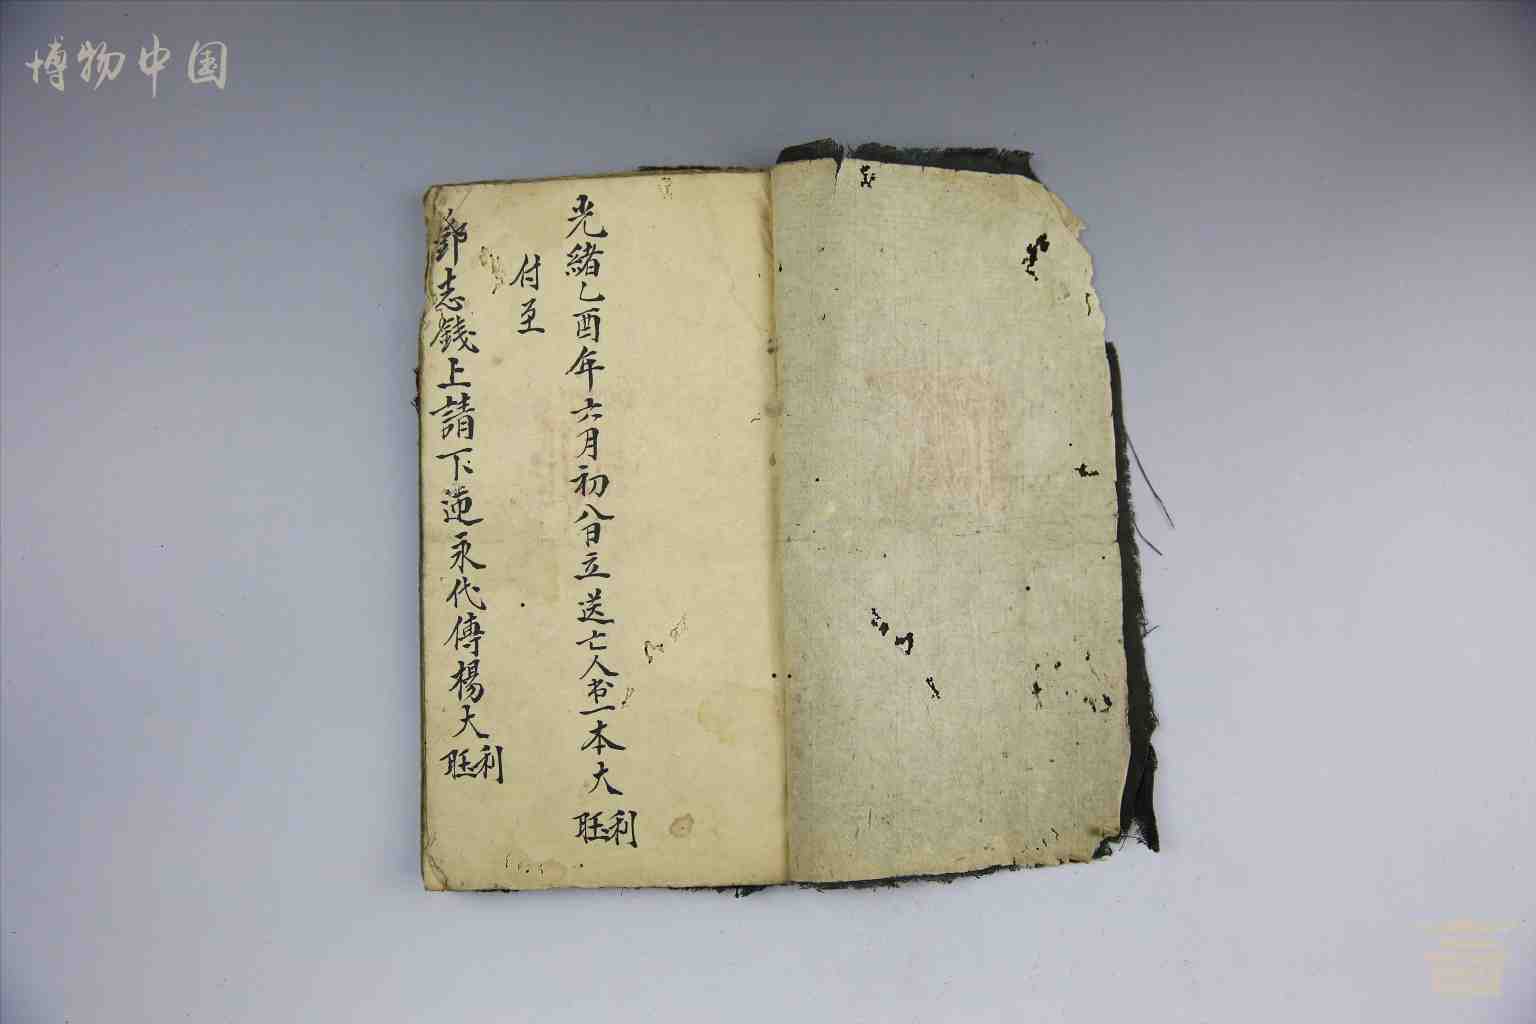 博物中国
光緒乙酉年六月初八日立送亡人书一本大利旺
付至
鄧志錢上請下遊永代傳楊大利旺